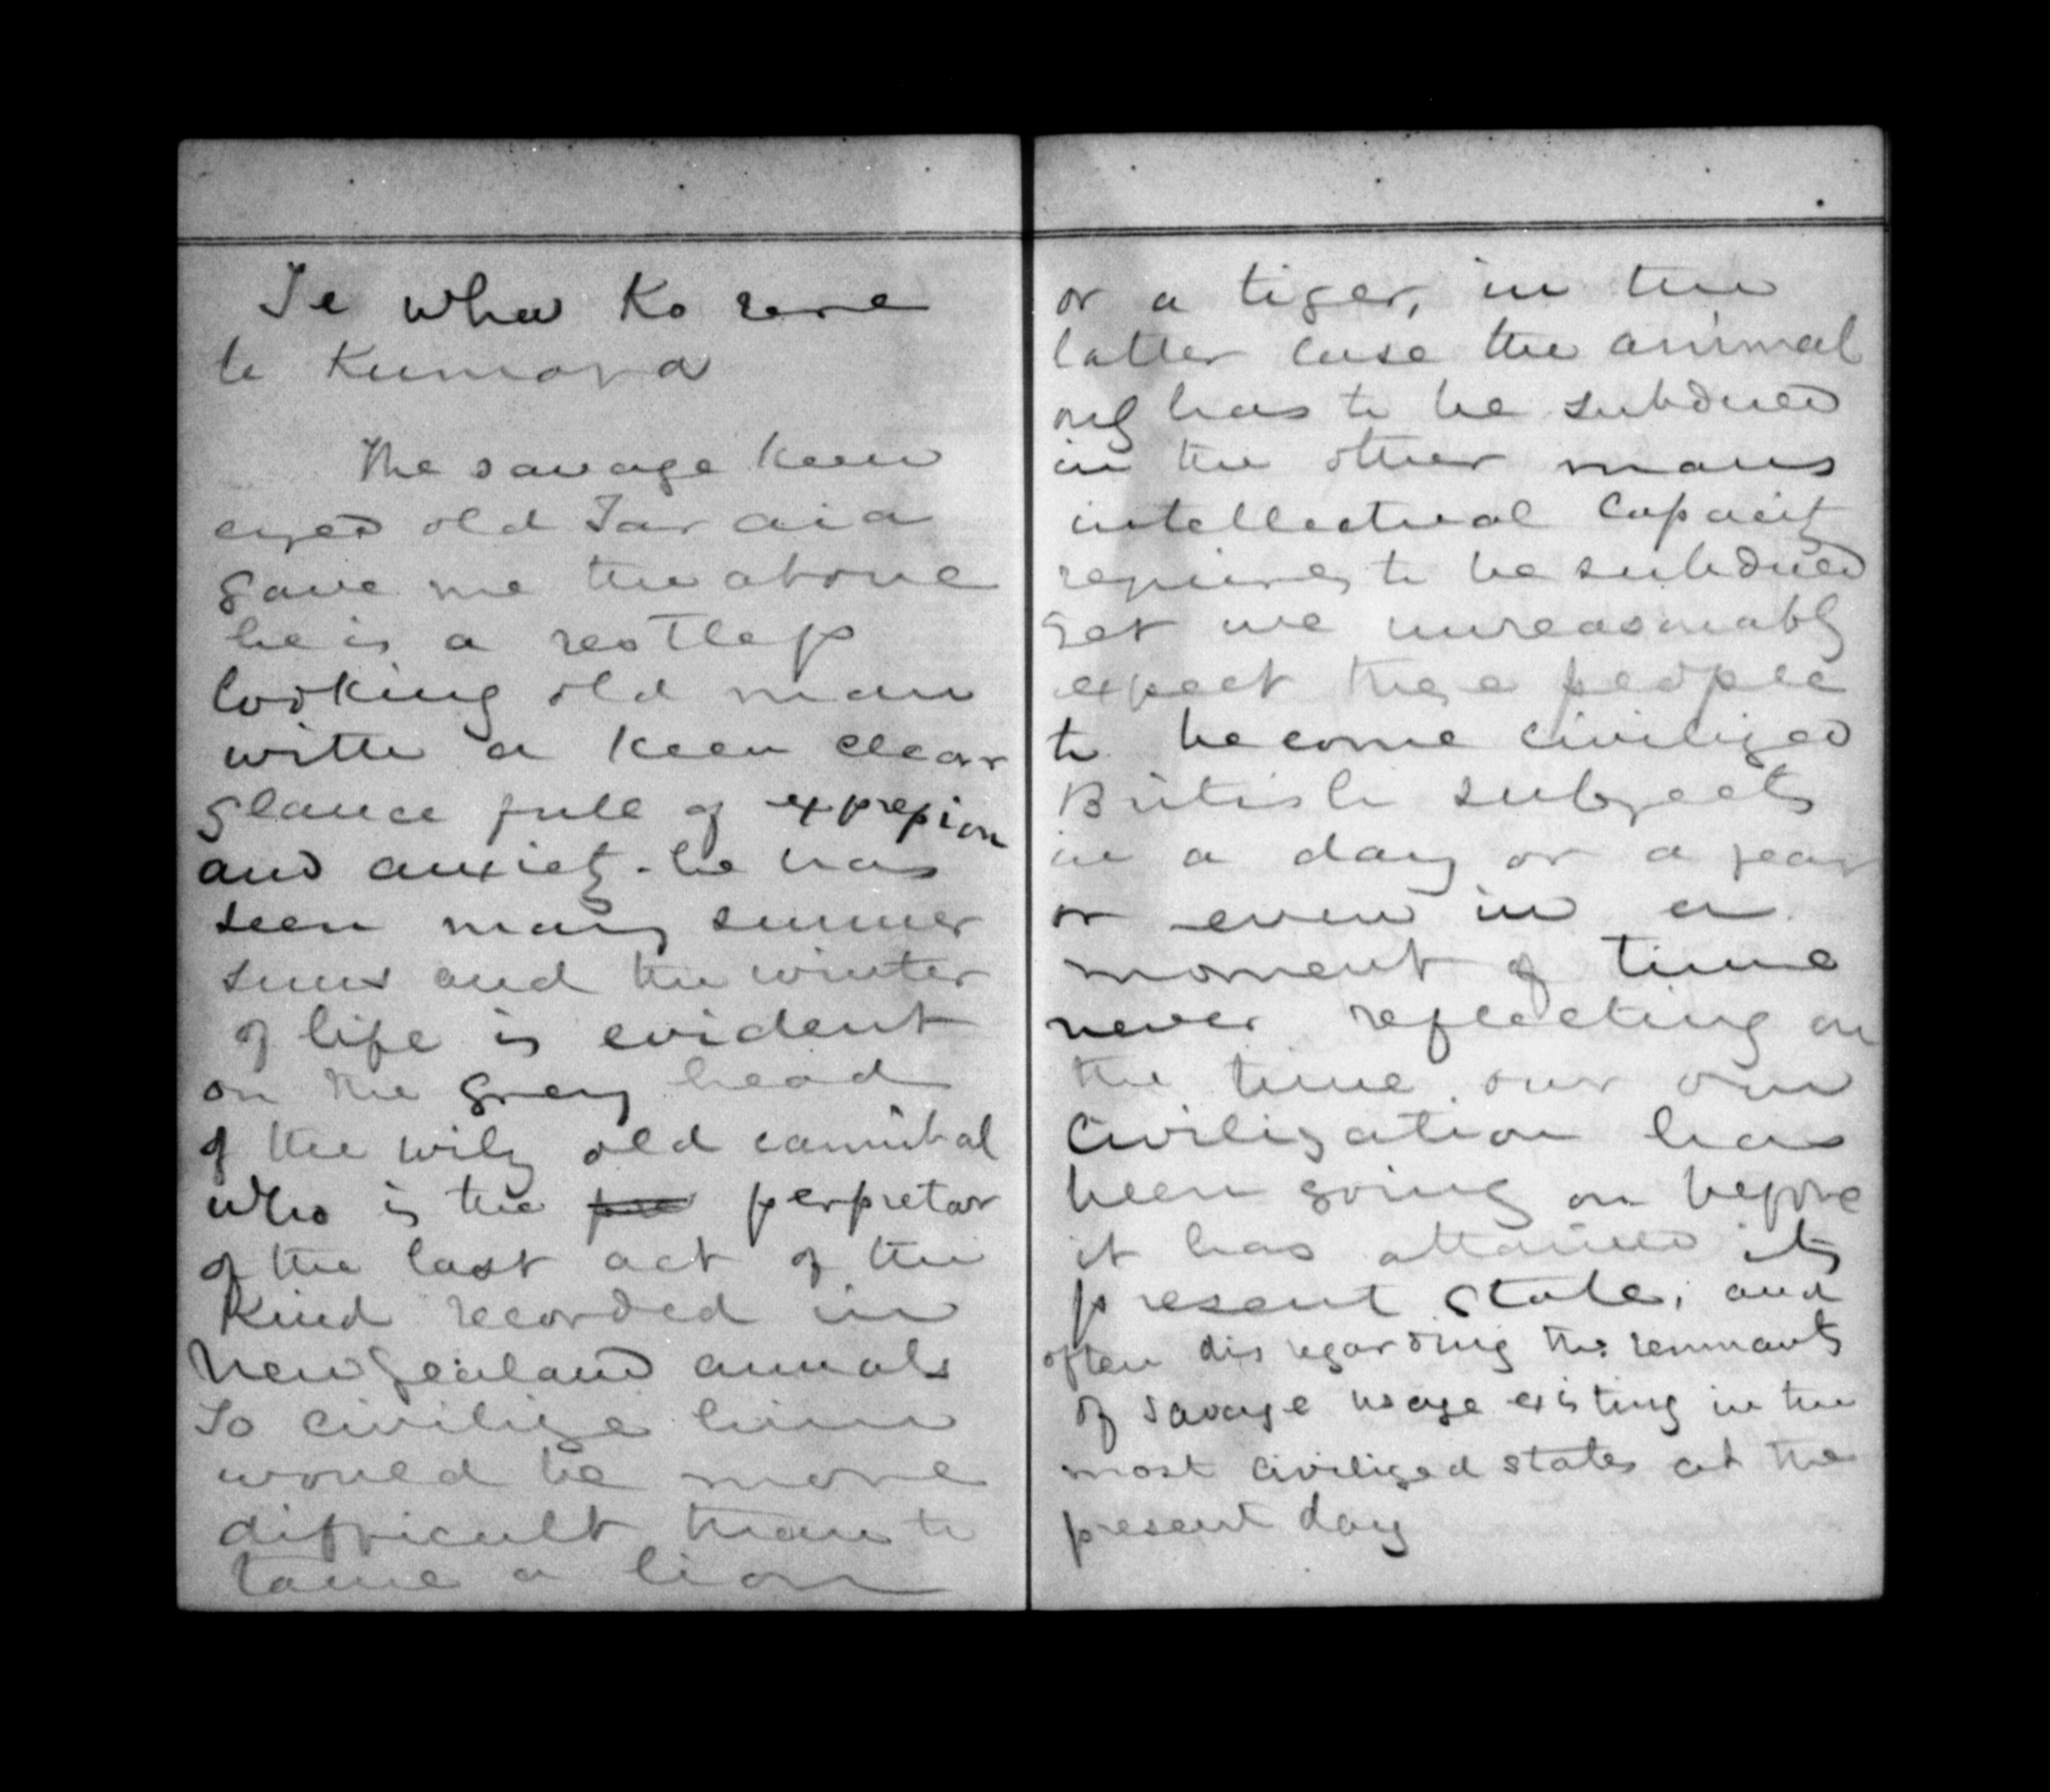 Te wha Ko rere
te Kumara
The savage keen
eyed old Taraia
gave me the above
he is a restless
looking old man
with a keen clear
glance full of expression
and anxiety. he has
seen many summer
suns and the winter
of life is evident
on the grey head
of the wily old cannibal
who is the perpretar
of the last act of the
Kind recorded in
New Zealand annals
To civilize him
would be more
difficult than to
tame a lion
or a tiger, in the
latter case the animal
only has to be subdued
in the other mans
intellectual capacity
requires to be subdued
yet we unreasonably
expect these people
to become civilized
British subjects
in a day or a year
or even in a
moment of time
never reflecting on
the time our own
Civilization has
been going on before
it has attained its
present state, and
often disregarding the remnants
of savage usage existing in the
most civilized states at the
present day